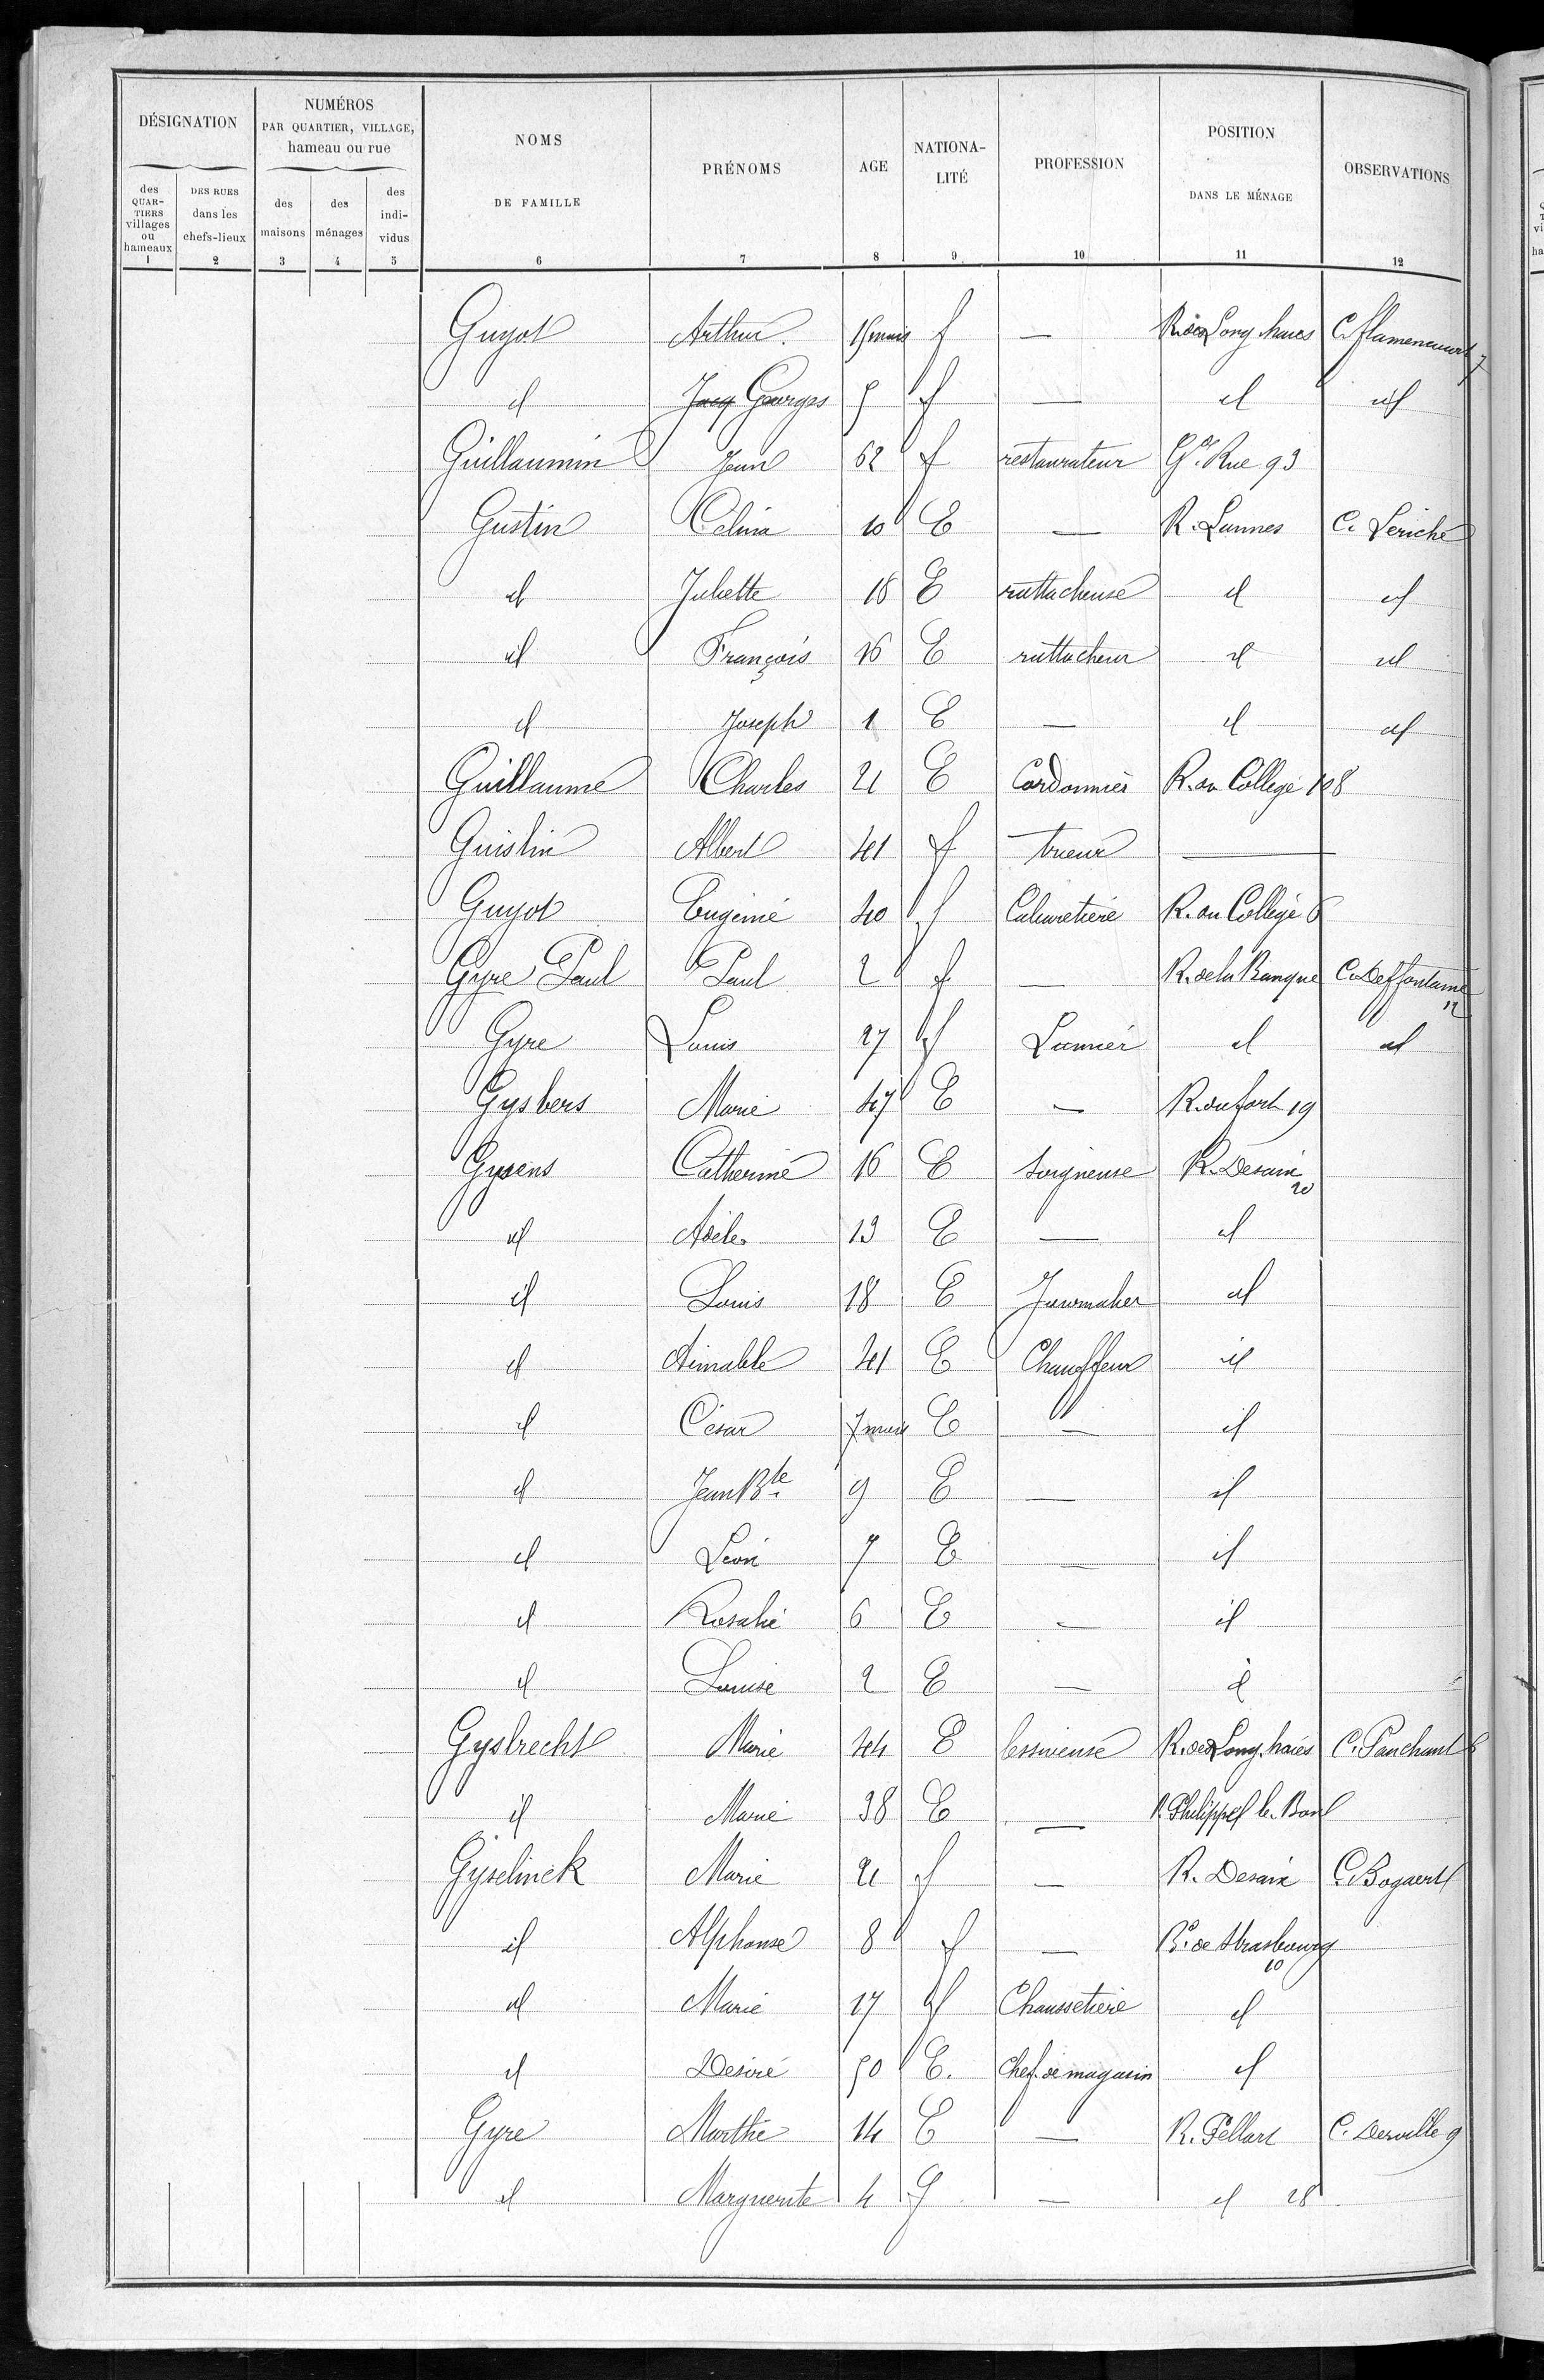 DÉSIGNATION NUMÉROS PAR QUARTIER, VILLAGE, hameau ou rue NOMS DE FAMILLE PRÉNOMS AGE NATIONA-LITÉ PROFESSION POSITION DANS LE MÉNAGE OBSERVATIONS
des QUAR-TIERS villages ou hameaux DES RUES dans les chefs-lieux des maisons des ménages des indi-vidus
1 2 3 4 5 6 7 8 9 10 11 12
Guyot Arthur. 15 mois f — R. des Long. haies C. flamencourt 7
id Jacq Georges 5 f — id id
Guillaumin Jean 62 f restaurateur Gde Rue 93
Gustin Celina 10 E — R. Lannes C. Leriche
id Juliette 18 E rattacheuse id id
id François 16 E rattacheur id id
id Joseph 1 E — id id
Guillaume Charles 21 E Cordonnier R. du College 108
Guislin Albert 41 f trieur —
Guyot Eugénie 40 f Cabaretière R. du College 6
Gyre Paul Paul 2 f — R. de la Banque C. Deffontaine 12
Gyre Louis 27 f Lamier id id
Gysbers Marie 47 E — R. du fort 19
Gysens Catherine 16 E soigneuse R. Desaix 20
id Adèle 13 E — id
id Louis 18 E id
id Aimable 41 E Chauffeur id
id César 7 mois E — id
id Jean Bte 9 E — id
id Léon 7 E — id
id Rosalie 6 E — id
id Louise 2 E — id
Gysbrecht Marie 44 E lessiveuse R. des Long. haies C. Panchant 6
id Marie 38 E — R. Philippe le Bon
Gyselinck Marie 21 f — R. Desaix C. Bogaert
id Alphonse 8 f — Bd de Strasbourg 10
id Marie 17 f Chaussetière id
id Desiré 50 E. Chef de magasin id
Gyre Marthe 14 E — R. Pellart C. Derville 9
id Marguerite 4 — id 28